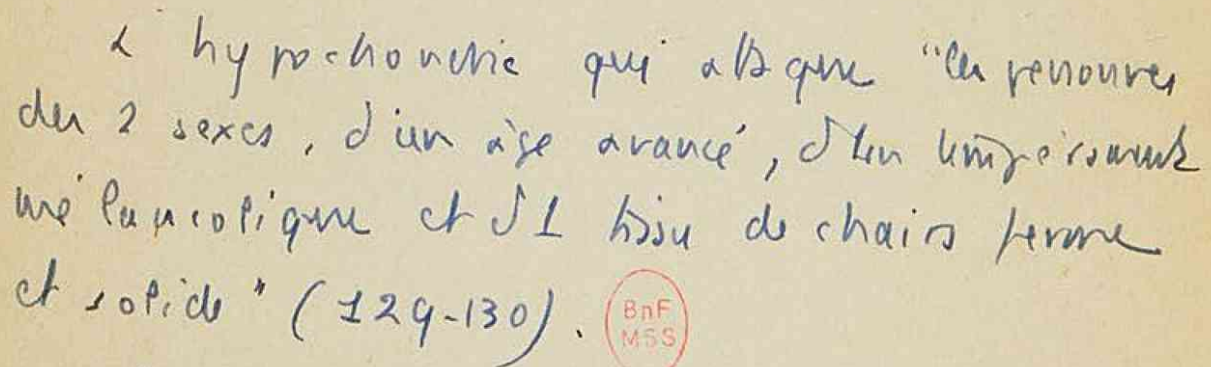 L hypochondrie qui attaque "les personnes
des 2 sexes, d'un âge avancé, d'un tempérament
mélancolique et d'1 tissu de chairs ferme
et solide" (129-130).
BnF
MSS